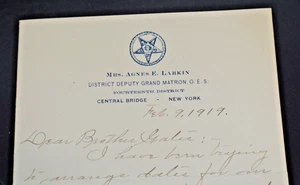 MRS. AGNES E. LARKIN
DISTRICT DEPUTY GRAND MATRON, O. E. S.
FOURTEENTH DISTRICT
CENTRAL BRIDGE - NEW YORK
Feb. 9, 1919.
Dear Brother :-
I have been trying
to arrange dates for our